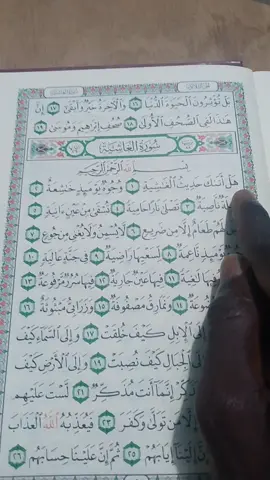 بَلْ تُؤْثِرُونَ ٱلْحَيَوٰةَ ٱلدُّنْيَا ١٦ وَٱلْءَاخِرَةُ خَيْرٌ وَأَبْقَىٰٓ ١٧ إِنَّ
هَٰذَا لَفِى ٱلصُّحُفِ ٱلْأُولَىٰ ١٨ صُحُفِ إِبْرَٰهِيمَ وَمُوسَىٰ ١٩
سُورَةُ الْغَاشِيَةِ
بِسْمِ ٱللَّهِ ٱلرَّحْمَٰنِ ٱلرَّحِيمِ
هَلْ أَتَىٰكَ حَدِيثُ ٱلْغَٰشِيَةِ ١ وُجُوهٌ يَوْمَئِذٍ خَٰشِعَةٌ ٢
نَّاصِبَةٌ ٣ تَصْلَىٰ نَارًا حَامِيَةً ٤ تُسْقَىٰ مِنْ عَيْنٍ ءَانِيَةٍ ٥
لَهُمْ طَعَامٌ إِلَّا مِن ضَرِيعٍ ٦ لَّا يُسْمِنُ وَلَا يُغْنِى مِن جُوعٍ ٧
يَوْمَئِذٍ نَّاعِمَةٌ ٨ لِّسَعْيِهَا رَاضِيَةٌ ٩ فِى جَنَّةٍ عَالِيَةٍ ١٠
فِيهَا لَٰغِيَةً ١١ فِيهَا عَيْنٌ جَارِيَةٌ ١٢ فِيهَا سُرُرٌ مَّرْفُوعَةٌ ١٣
مَّوْضُوعَةٌ ١٤ وَنَمَارِقُ مَصْفُوفَةٌ ١٥ وَزَرَابِىُّ مَبْثُوثَةٌ ١٦
إِلَى ٱلْإِبِلِ كَيْفَ خُلِقَتْ ١٧ وَإِلَى ٱلسَّمَآءِ كَيْفَ
وَإِلَى ٱلْجِبَالِ كَيْفَ نُصِبَتْ ١٩ وَإِلَى ٱلْأَرْضِ كَيْفَ
فَذَكِّرْ إِنَّمَآ أَنتَ مُذَكِّرٌ ٢١ لَّسْتَ عَلَيْهِم
إِلَّا مَن تَوَلَّىٰ وَكَفَرَ ٢٣ فَيُعَذِّبُهُ ٱللَّهُ ٱلْعَذَابَ
إِنَّ إِلَيْنَآ إِيَابَهُمْ ٢٥ ثُمَّ إِنَّ عَلَيْنَا حِسَابَهُم ٢٦